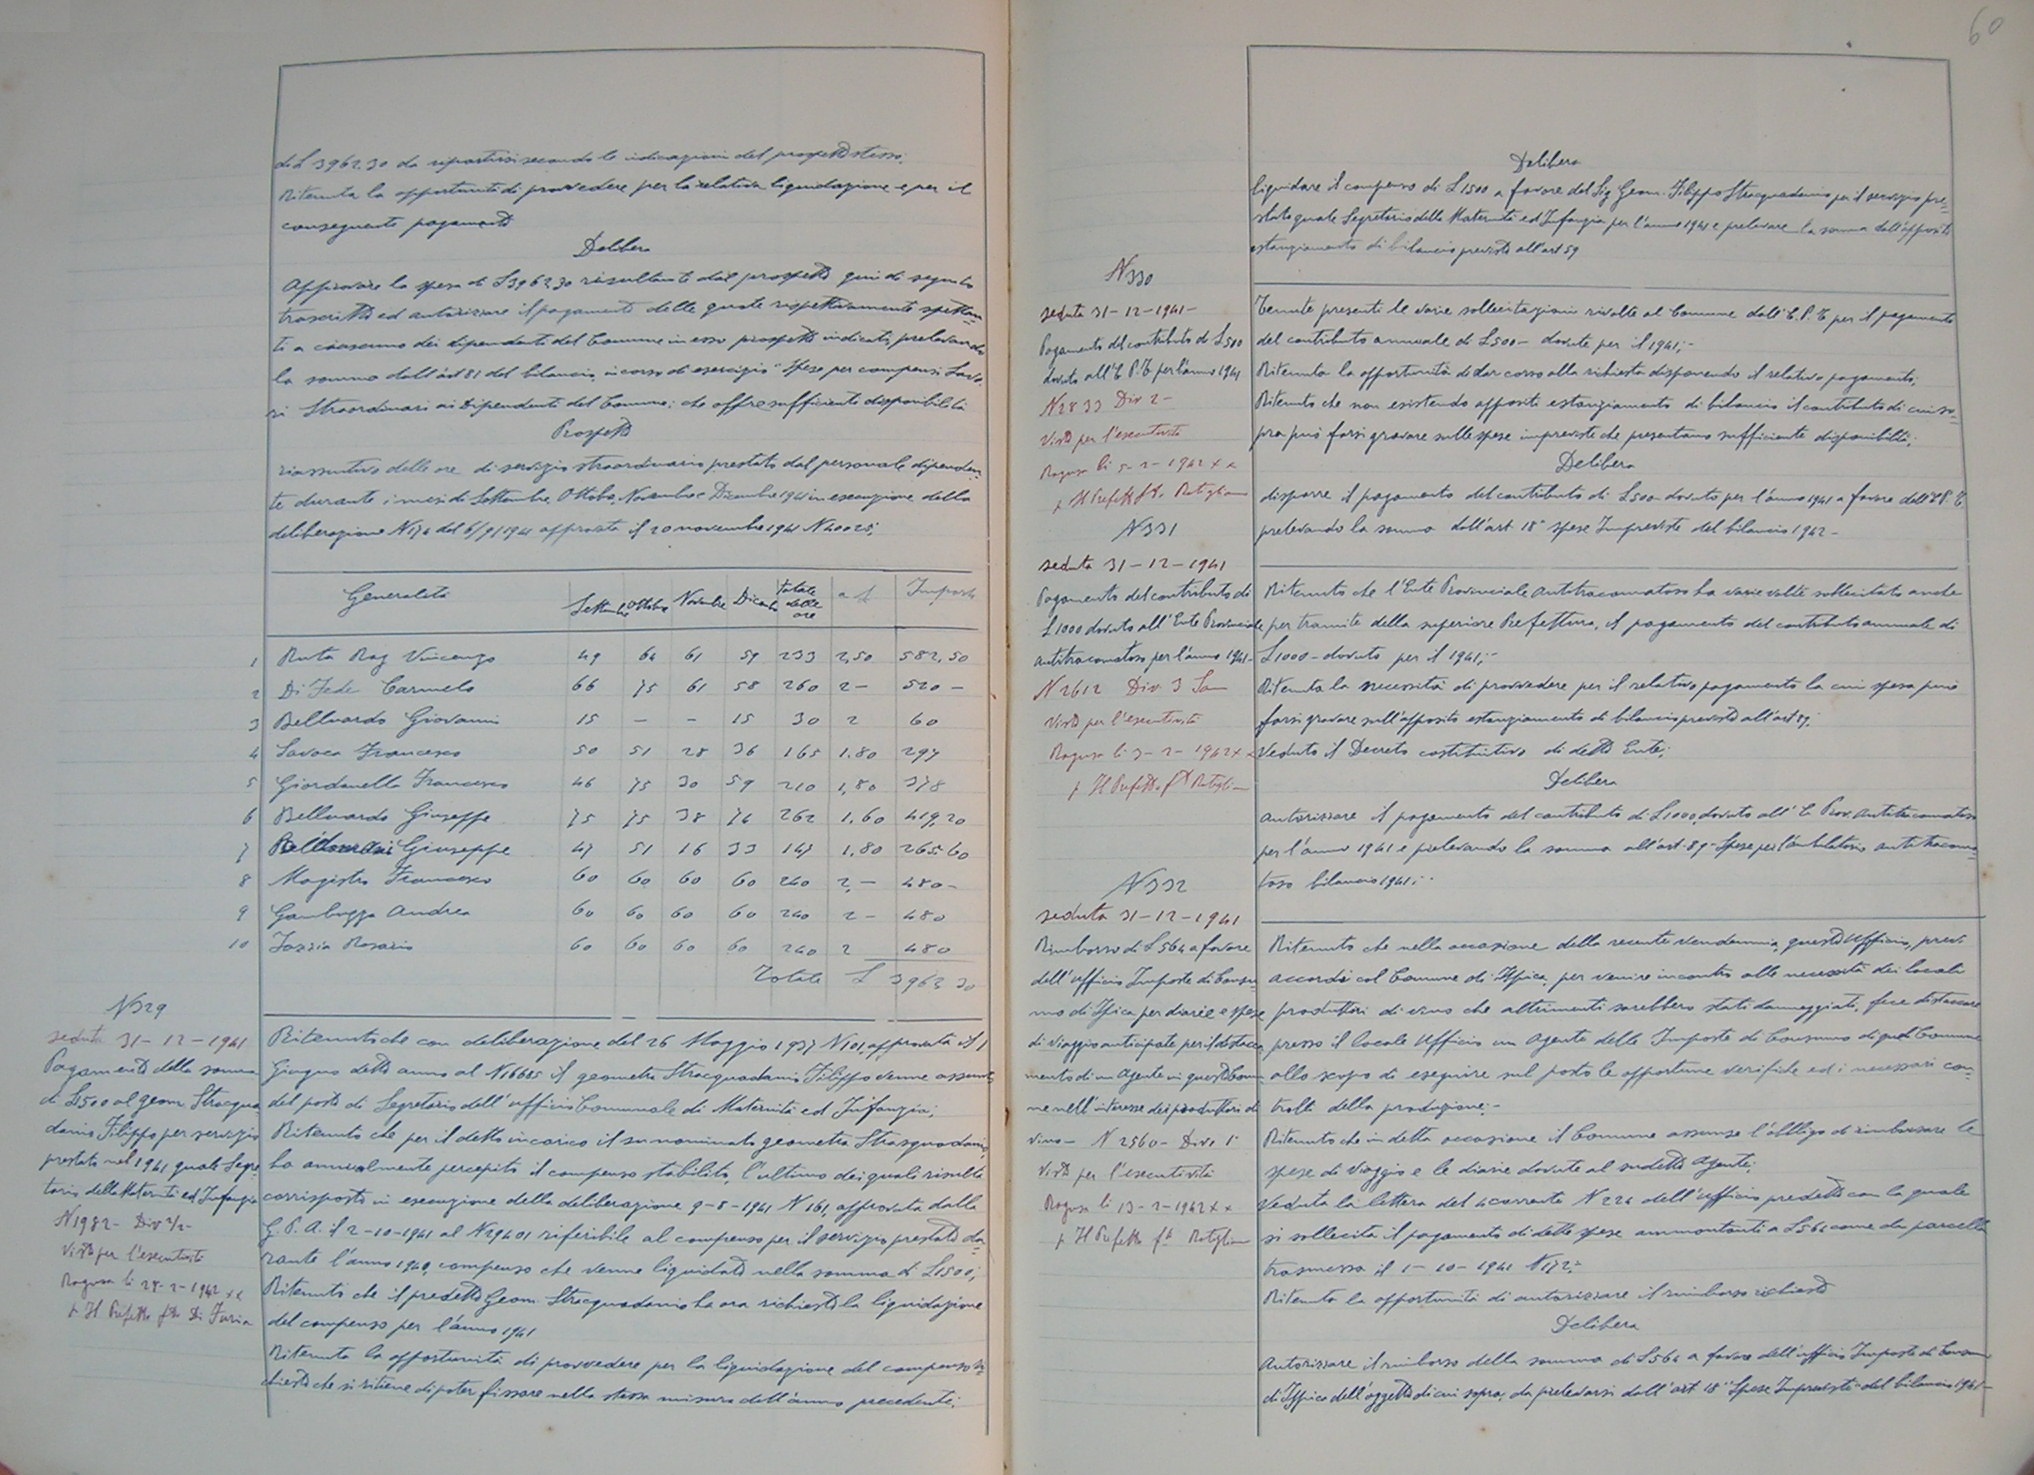 60
di L 3962.30 da ripartirsi secondo le indicazioni del prospetto stesso.
Ritenuta la opportunità di provvedere per la relativa liquidazione e per il
conseguente pagamento
Delibera
Approvare la spesa di L 3962,30 risultante dal prospetto qui di seguito
trascritto ed autorizzare il pagamento delle quote rispettivamente spettan-
ti a ciascuno dei dipendenti del Comune in esso prospetto indicati, prelevando
la somma dall'art 81 del bilancio in corso di esercizio "Spese per compensi Lavo
ri Straordinari ai Dipendenti del Comune; che offre sufficiente disponibilità
Prospetto
riassuntivo delle ore di servizio straordinario prestato dal personale dipenden-
te durante i mesi di Settembre, Ottobre, Novembre e Dicembre 1941 in esecuzione della
deliberazione N 174 del 6/9/1941 approvata il 20 novembre 1941 N 40025;
Generalità Settembre Ottobre Novembre Dicembre Totale delle ore a L Importo
1 Ruta Rag Vincenzo 49 64 61 59 233 2,50 582,50
2 Di Fede Carmelo 66 75 61 58 260 2- 520-
3 Belluardo Giovanni 15 - - 15 30 2 60
4 Savoca Francesco 50 51 28 36 165 1.80 297
5 Giordanella Francesco 46 75 30 59 210 1,80 378
6 Belluardo Giuseppe 75 75 38 74 262 1,60 419,20
7 Giuseppe 47 51 16 33 147 1,80 265.60
8 Magistro Francesco 60 60 60 60 240 2,- 480-
9 Gambuzza Andrea 60 60 60 60 240 2- 480
10 Iozzia Rosario 60 60 60 60 240 2 480
Totale L 3962 30
N 329
seduta 31-12-1941
Pagamento della somma
di L 1500 al geom. Stracqua
danio Filippo per servizio
prestato nel 1941 quale Segre
tario della Maternità ed Infanzia
N 1982- Div 2/2-
Visto per l'esecutività
Ragusa lì 24-2-1942 xx
p Il Prefetto fto Di Furia
Ritenuto che con deliberazione del 26 Maggio 1937 N 101, approvata il 1
Giugno detto anno al N 16685 il geometra Stracquadanio Filippo venne assunto
del posto di Segretario dell'ufficio Comunale di Maternità ed Infanzia;
Ritenuto che per il detto incarico il su nominato geometra Strasquadanio
ha annualmente percepito il compenso stabilito, l'ultimo dei quali risulta
corrisposto in esecuzione della deliberazione 9-8-1941 N 161, approvata dalla
G. P. A. il 2-10-1941 al N 29401 riferibile al compenso per il servizio prestato du-
rante l'anno 1940, compenso che venne liquidato nella somma di L 1500;
Ritenuto che il predetto Geom. Stracquadanio ha ora richiesto la liquidazione
del compenso per l'anno 1941
Ritenuta la opportunità di provvedere per la liquidazione del compenso ri-
chiesto che si ritiene di poter fissare nella stessa misura dell'anno precedente;
Delibera
liquidare il compenso di L 1500 a favore del Sig Geom. Filippo Stracquadanio per il servizio pre-
stato quale Segretario della Maternità ed Infanzia per l'anno 1941 e prelevare la somma dall'apposito
stanziamento di bilancio previsto all'art 59
N 330
seduta 31-12-1941-
Pagamento del contributo di L 500
dovuto all'E.P.T per l'anno 1941
N 2833 Div 2-
Visto per l'esecutività
Ragusa lì 5-2-1942 xx
p Il Prefetto fto
Tenute presenti le varie sollecitazioni rivolte al Comune dall'E.P.T per il pagamento
del contributo annuale di L 500- dovute per il 1941;-
Ritenuta la opportunità di dar corso alla richiesta disponendo il relativo pagamento;
Ritenuto che non esistendo apposito estanziamento di bilancio il contributo di cui so-
pra può farsi gravare sulle spese impreviste che presentano sufficiente disponibilità;
Delibera
disporre il pagamento del contributo di L 500- dovuto per l'anno 1941 a favore dell'E.P.T.
prelevando la somma dall'art 18° spese Impreviste del bilancio 1942-
N 331
seduta 31-12-1941
Pagamento del contributo di
L 1000 dovuto all'Ente Provinciale
antitracomatoso per l'anno 1941-
N 2612 Div. 3 San
Visto per l'esecutività
Ragusa lì 3-2-1942 xx
p Il Prefetto fto
Ritenuto che l'Ente Provinciale Antitracomatoso ha varie volte sollecitato anche
per tramite della superiore Prefettura, il pagamento del contributo annuale di
L 1000- dovuto per il 1941;-
Ritenuta la necessità di provvedere per il relativo pagamento la cui spesa può
farsi gravare sull'apposito estanziamento di bilancio previsto all'art 89;
Veduto il Decreto costitutivo di detto Ente;
Delibera
Autorizzare il pagamento del contributo di L 1000, dovuto all'E. Prov. Antitracomatoso
per l'anno 1941 e prelevando la somma all'art. 89- Spese per l'ambulatorio antitracoma-
toso bilancio 1941;-
N 332
seduta 31-12-1941
Rimborso di L 564 a favore
dell'ufficio Imposte di Consu-
mo di Ispica per diarie e spese
di viaggio anticipate per il distacca
mento di un Agente in questo Comu
ne nell'interesse dei produttori di
vino- N 2560- Div. 1°
Visto per l'esecutività
Ragusa lì 13-2-1942 xx
p Il Prefetto fto
Ritenuto che nella occasione della recente vendemmia, questo Ufficio, previ
accordi col Comune di Ispica, per venire incontro alle necessità dei locali
produttori di vino che altrimenti sarebbero stati danneggiati, fece distaccare
presso il locale Ufficio un Agente delle Imposte di Consumo di quel Comune
allo scopo di eseguire sul posto le opportune verifiche ed i necessari con-
trolli della produzione;-
Ritenuto che in detta occasione il Comune assunse l'obbligo di rimborsare le
spese di viaggio e le diarie dovute al sudetto Agente;
Veduta la lettera del 4 corrente N 224 dell'ufficio predetto con la quale
si sollecita il pagamento di dette spese ammontanti a L 564 come da parcella
trasmessa il 1-10-1941 N 172;-
Ritenuta la opportunità di autorizzare il rimborso richiesto
Delibera
Autorizzare il rimborso della somma di L 564 a favore dell'ufficio Imposte di Consumo
di Ispica dell'oggetto di cui sopra, da prelevarsi dall'art 18° "Spese Impreviste" del bilancio 1941-